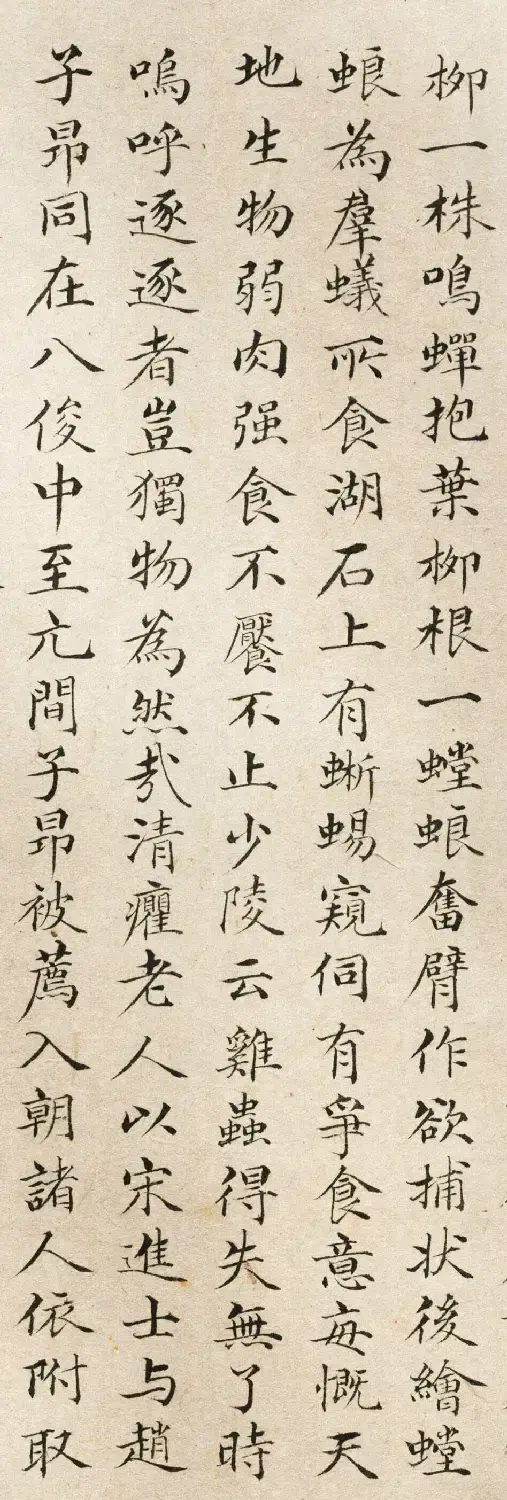 柳一株鳴蟬抱葉柳根一螳蜋奮臂作欲捕状後繪螳
蜋為羣蟻所食湖石上有蜥蜴窺伺有爭食意每慨天
地生物弱肉强食不饜不止少陵云雞蟲得失無了時
嗚呼逐逐者豈獨物為然哉清癯老人以宋進士与趙
子昂同在八俊中至元間子昂被薦入朝諸人依附取